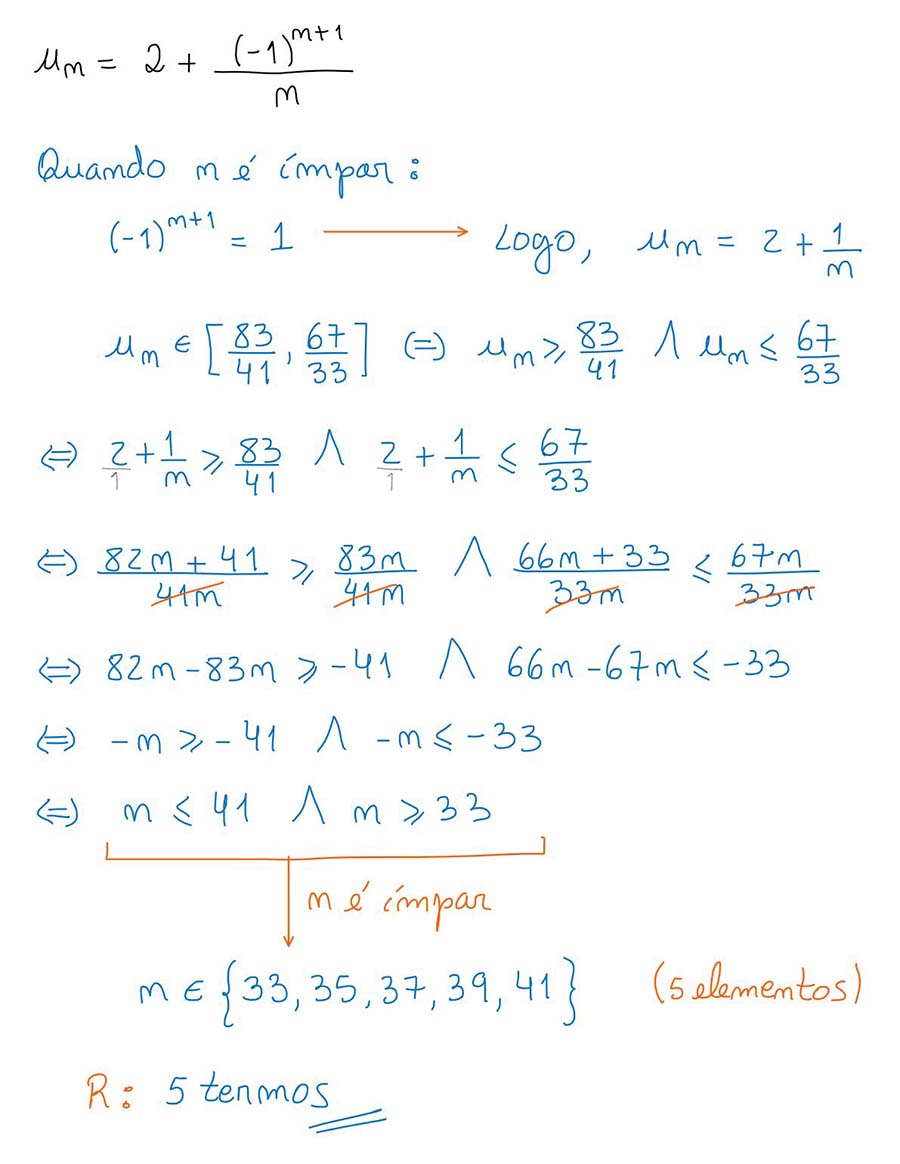 u_n = 2 + (-1)^(n+1)/n
Quando n é ímpar:
(-1)^(n+1) = 1 → Logo, u_n = 2 + 1/n
u_n ∈ [83/41, 67/33] (=) u_n ⩾ 83/41 ∧ u_n ≤ 67/33
⇔ 2/1 + 1/n ⩾ 83/41 ∧ 2/1 + 1/n ≤ 67/33
⇔ (82n + 41)/(41n) ⩾ 83n/(41n) ∧ (66n + 33)/(33n) ≤ 67n/(33n)
⇔ 82n - 83n ⩾ -41 ∧ 66n - 67n ≤ -33
⇔ -n ⩾ -41 ∧ -n ≤ -33
⇔ n ≤ 41 ∧ n ⩾ 33
n é ímpar
n ∈ {33, 35, 37, 39, 41} (5 elementos)
R: 5 termos